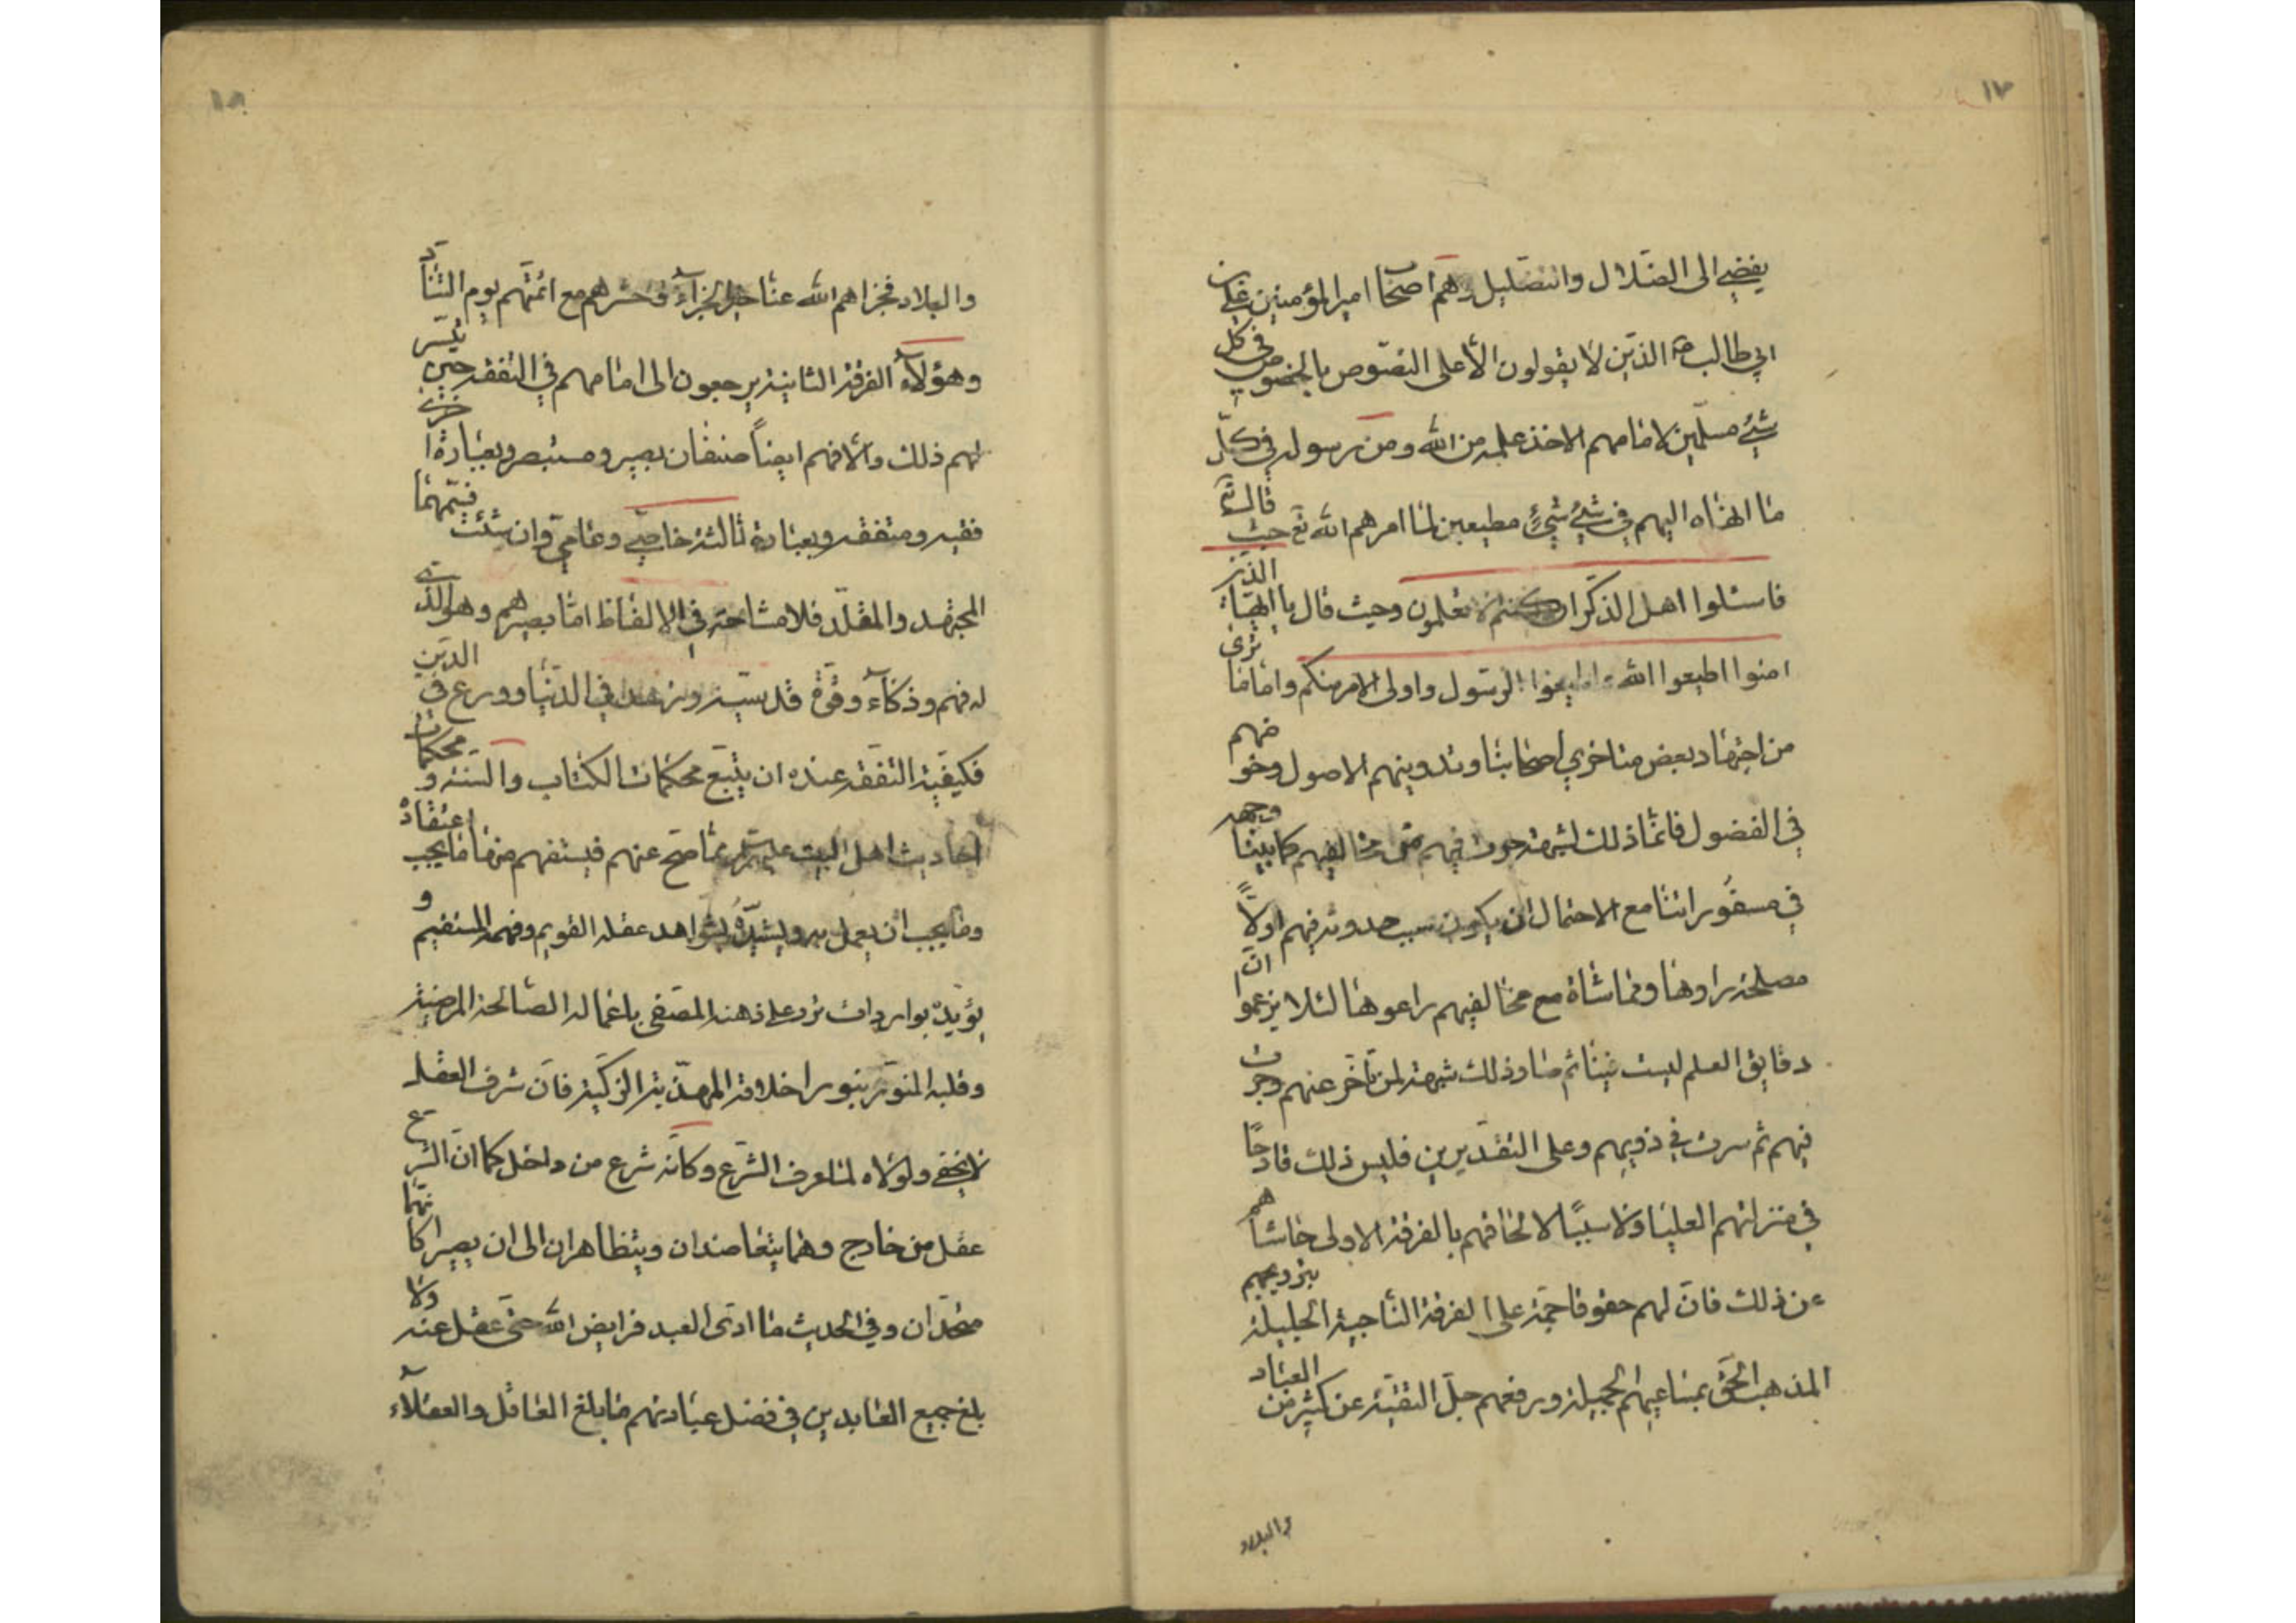 ١٧
يفضي الى الضلال والتضليل وهم اصحاب امير المؤمنين علي بن
ابي طالب الذين لا يقولون الا على النصوص بالخصوص في كل
شيء مسلمين لامامهم الاخذ علمه من الله ومن رسوله في كل
ما انهاه اليهم في شيء شيء مطيعين لما امرهم الله تع حيث قال
فاسئلوا اهل الذكر ان كنتم لا تعلمون وحيث قال يا ايها الذين
امنوا اطيعوا الله واطيعوا الرسول واولى الامر منكم واما ما ترى
من اجتهاد بعض متاخري اصحابنا وتدوينهم الاصول وخوضهم
في الفضول فانما ذلك لشبهة جرت فيهم من مخالفيهم كما بينا وجهه
في مسفوراتنا مع الاحتمال ان يكون سبب حدوثه فيهم اولاً
مصلحة راوها ومماشاة مع مخالفيهم راعوها لئلا يزعموا ان
دقايق العلم ليست فينا ثم صار ذلك شبهة لمن تأخر عنهم وجرت
فيهم ثم سرت في ذويهم وعلى التقديرين فليس ذلك قادحًا
في منزلتهم العليا ولا سببًا لالحاقهم بالفرقة الاولى حاشاهم
عن ذلك فان لهم حقوقا جمة على الفرقة الناجية الجليلة بترويجهم
المذهب الحق بمساعيهم الجميلة ورفعهم جل التقية عن كثير من العباد
والبلاد
١٨
والبلاد فجزاهم الله عنا خير الجزاء وحشرهم مع ائمتهم يوم التناد
وهؤلاء الفرقة الثانية يرجعون الى امامهم في التفقه حين تيسر
لهم ذلك والا فهم ايضاً صنفان بصير ومستبصر وبعبارة اخرى
فقيه ومتفقه وبعبارة ثالثة خاصي وعامي وان شئت فسمهما
المجتهد والمقلد فلا مشاحة في الالفاظ اما بصيرهم وهو الذي
له فهم وذكاء وقوة قدسية وزهد في الدنيا وورع في الدين
فكيفية التفقه عنده ان يتتبع محكمات الكتاب والسنة ومحكمات
احاديث اهل البيت عليهم مما صح عنهم فيستفهم منها ما يجب اعتقاده
وما يجب ان يعمل به ويشيده بشواهد عقله القويم وفهمه المستقيم و
يؤيده بواردات ترد على ذهنه المصفى باعماله الصالحة المرضية
وقلبه المنور بنور اخلاقه المهذبة الزكية فان شرف العقل
لا يخفى ولولاه لما عرف الشرع وكانه شرع من داخل كما ان الشرع
عقل من خارج وهما يتعاضدان ويتظاهران الى ان يصيرا كانهما
متحدان وفي الحديث ما ادى العبد فرايض الله حتى عقل عنه ولا
بلغ جميع العابدين في فضل عبادتهم ما بلغ العاقل والعقلاء